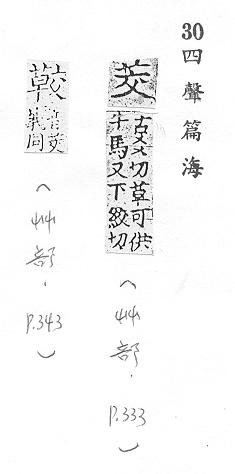 30四聲篇海
茭
古爻切草可供
牛馬又下絞切
(艸部.P.333)
音茭
義同
(艸部.P.343)